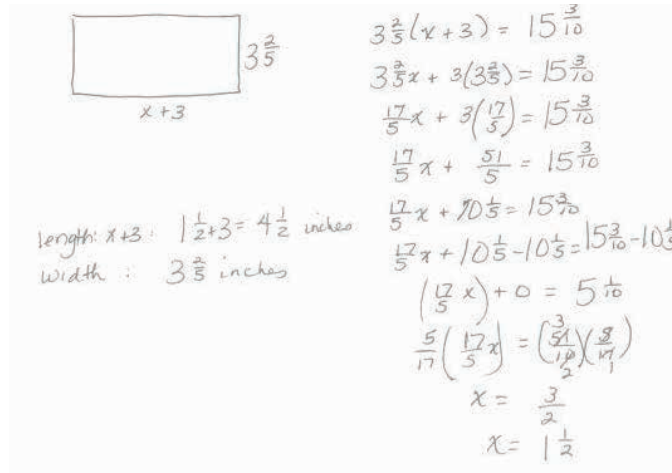 3 2/5
x + 3
length: x+3: 1 1/2 + 3 = 4 1/2 inches
width : 3 2/5 inches
3 2/5 (x + 3) = 15 3/10
3 2/5 x + 3(3 2/5) = 15 3/10
17/5 x + 3(17/5) = 15 3/10
17/5 x + 51/5 = 15 3/10
17/5 x + 10 1/5 = 15 3/10
17/5 x + 10 1/5 - 10 1/5 = 15 3/10 - 10 1/5
(17/5 x) + 0 = 5 1/10
5/17 (17/5 x) = (51/10)(5/17) 3 2 1
x = 3/2
x = 1 1/2